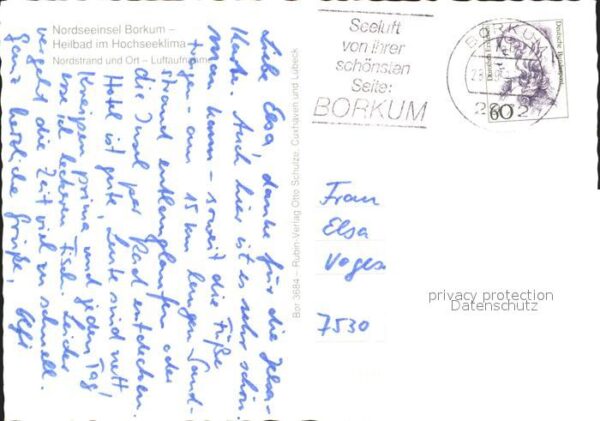 Nordseeinsel Borkum –
Heilbad im Hochseeklima
Nordstrand und Ort – Luftaufnahme
Liebe Elsa, danke für die
Karte. Auch hier ist es sehr schön.
Man kann – soweit die Füße
tragen – am 15 km langen Sand-
strand entlanglaufen oder
die Insel per Rad entdecken.
Hotel ist gute, Leute sind nett
Kneipen prima und jeden Tag
leckeren Fisch. Leider
vergeht die Zeit viel zu schnell.
Ganz herzliche Grüße,
Bor 3684 – Rubin-Verlag Otto Schulze, Cuxhaven und Lübeck
Seeluft
von ihrer
schönsten
Seite:
BORKUM
BORKUM
2972
60
Deutsche Bundespost
Frau
Elsa
Voges
7530
privacy protection
Datenschutz